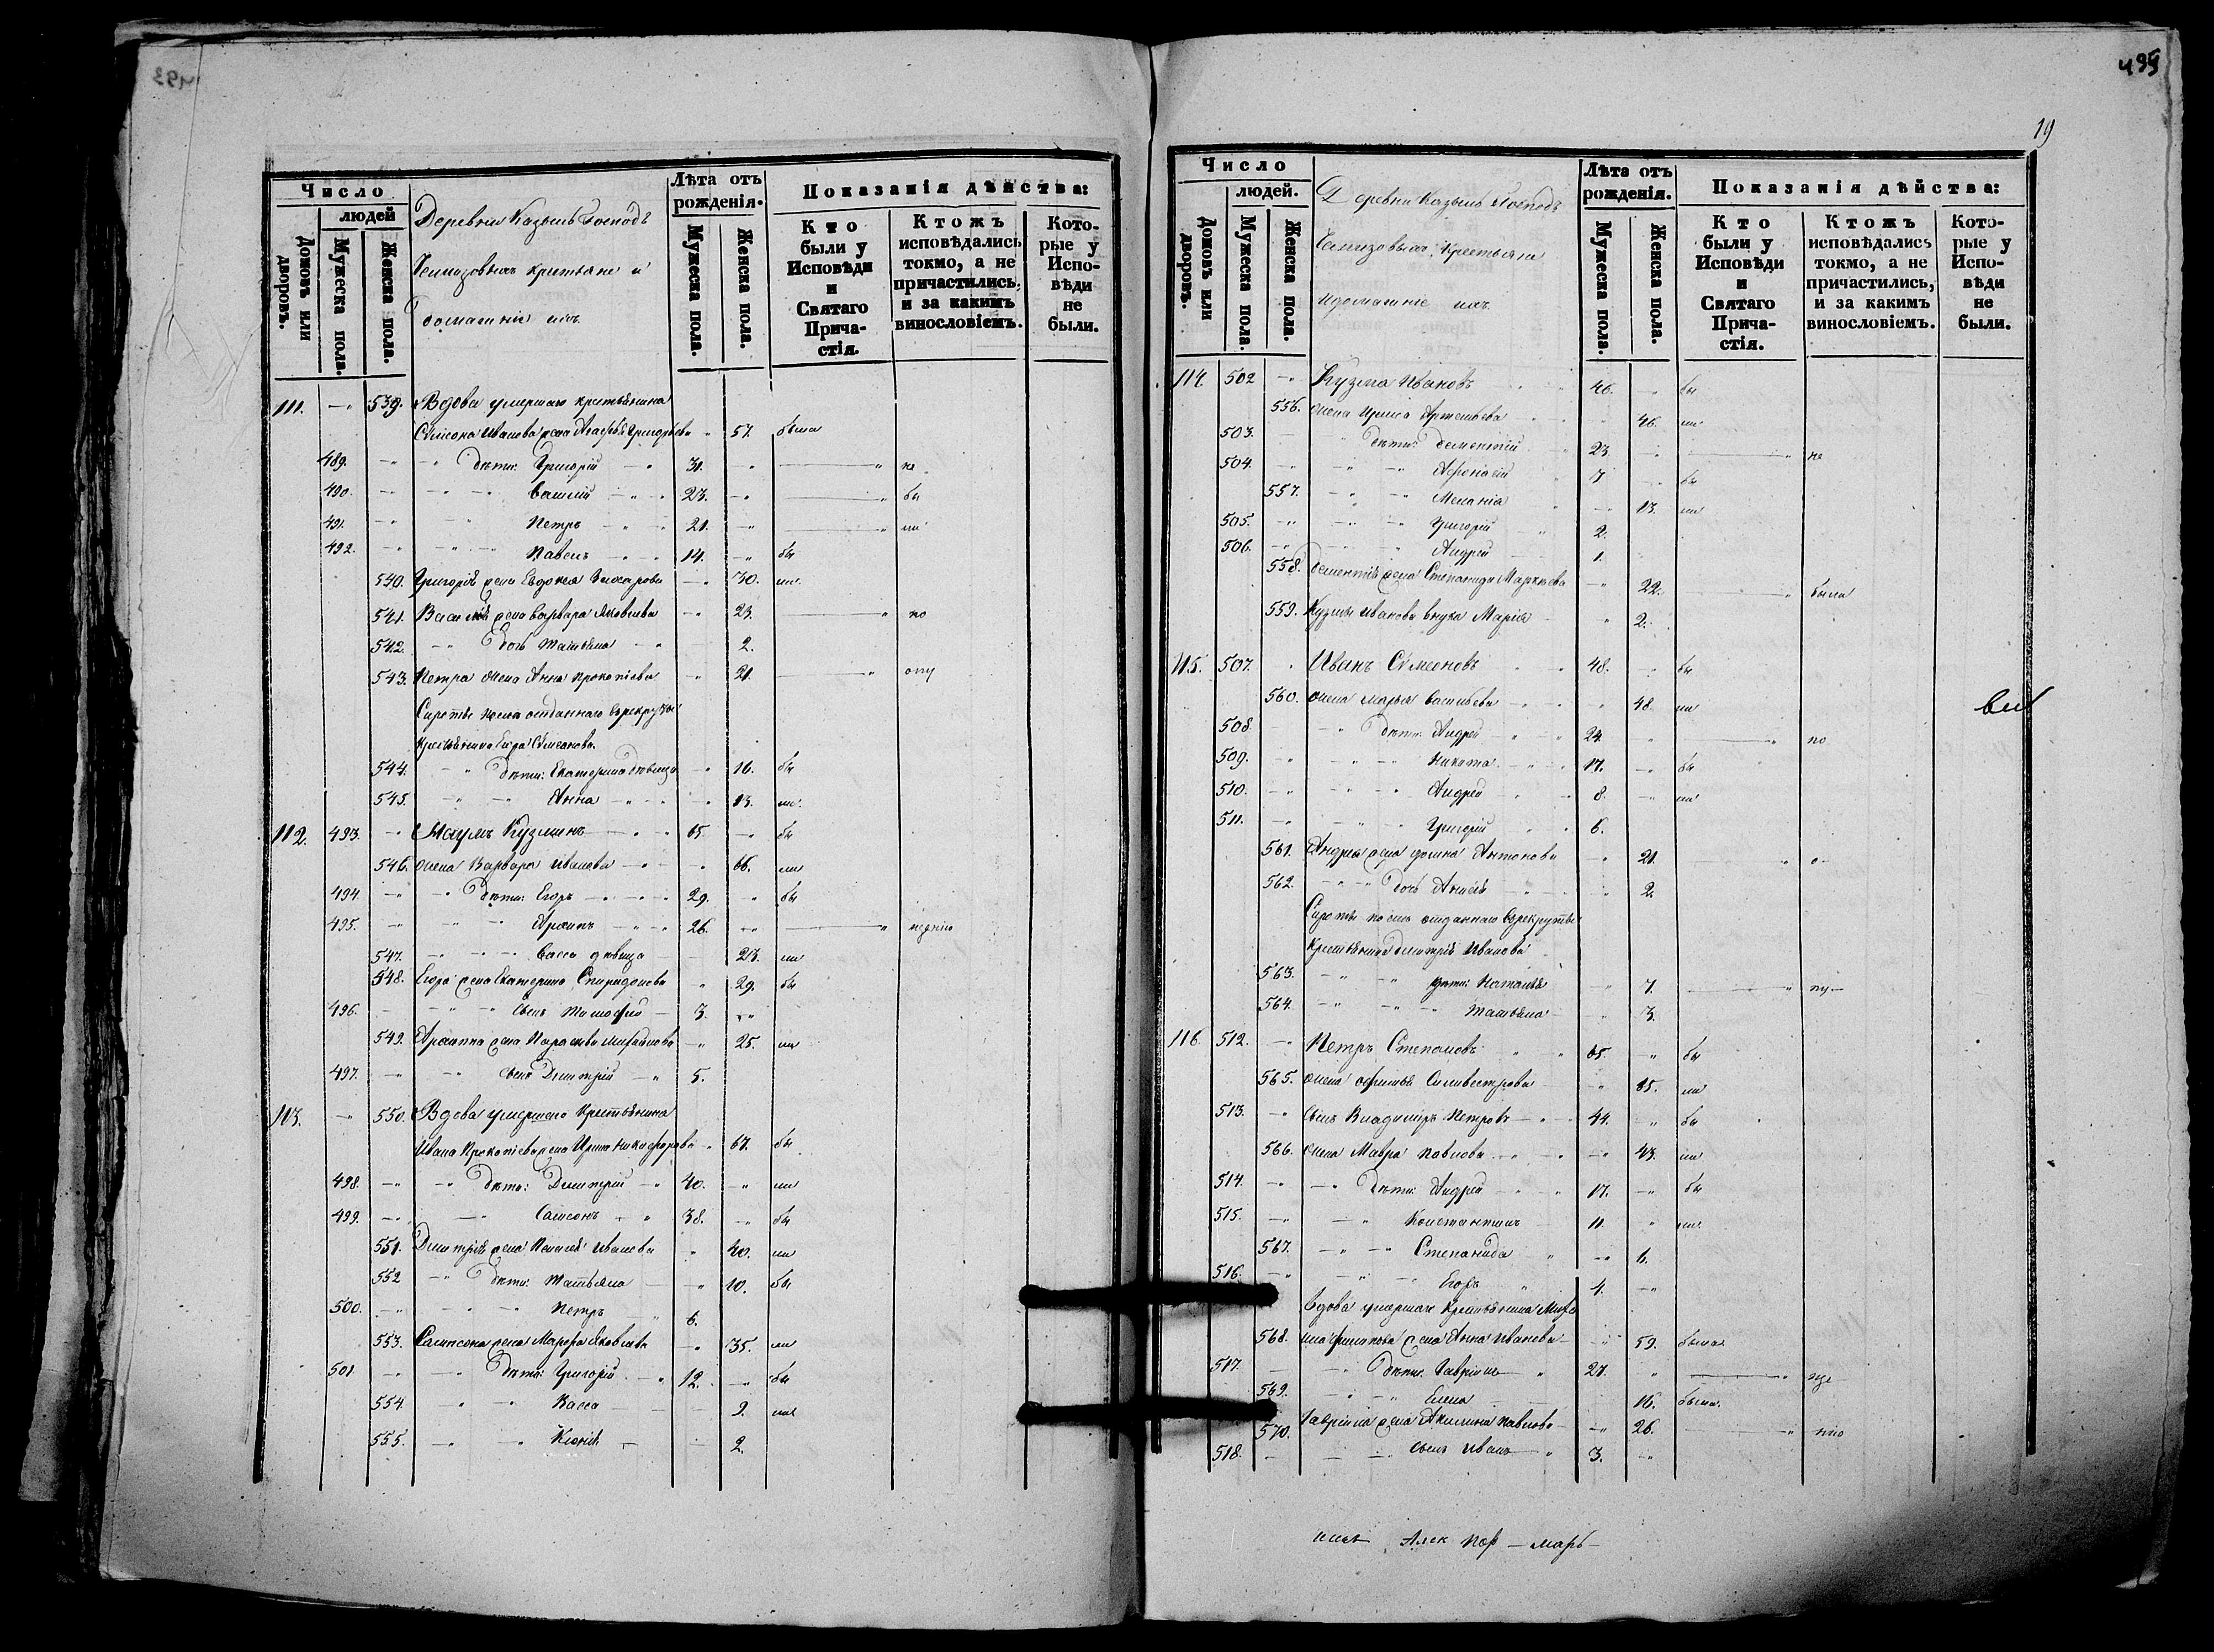 493
Число
людей
Домовъ или дворовъ.
Мужеска пола.
Женска пола.
Деревни Казынь Господъ
крестьяне и
домашніе ихъ.
Лѣта отъ рожденія.
Мужеска пола.
Женска пола.
Показанія дѣйства:
Кто были у Исповѣди и Святаго Причастія.
Ктожъ исповѣдались токмо, а не причастились, и за какимъ винословіемъ.
Которые у Исповѣди не были.
111. 539. Вдова умершаго крестьянина
Симеона Иванова жена Агафья Григорьева 57. была
489. дѣти: Григорій 31. не
490. Василій 23. бы
491. Петръ 21. ли
492. Павелъ 14. бы
540. Григорія жена Евдокія Захарова 30. ли
541. Василія жена Варвара Яковлева 23. по
542. дочь Татьяна 2.
543. Петра жена Анна Прокопіева 21. опу
Сироты послѣ отданнаго въ рекруты
крестьянина Егора Симеонова
544. дѣти: Екатерина дѣвица 16. бы
545. Анна 13. ли
112. 493. Наумъ Кузминъ 65. бы
546. жена Варвара Иванова 66. ли
494. дѣти: Егоръ 29. бы
495. Архипъ 26.
547. Васса дѣвица 23. ли
548. Егора жена Екатерина Спиридонова 29. бы
496. сынъ Тимофей 3.
549. Архипа жена Параскева Михайлова 25. ли
497. сынъ Дмитрій 5.
113. 550. Вдова умершаго крестьянина
Ивана Прокопіева жена Ирина Никифорова 67. бы
498. дѣти: Дмитрій 40. ли
499. Сампсонъ 38. бы
551. Дмитрія жена Пелагея Иванова 40. ли
552 дѣти: Татьяна 10. бы
500. Петръ 6.
553. Сампсона жена Марфа Яковлева 35. ли
501 дѣти: Григорій 12. бы
554. Васса 9. ли
555. Ксенія 2.
499
19
Число
людей.
Домовъ или дворовъ.
Мужеска пола.
Женска пола.
Деревни Казынь Господъ
Крестьяне
и домашніе ихъ.
Лѣта отъ рожденія.
Мужеска пола.
Женска пола.
Показанія дѣйства:
Кто были у Исповѣди и Святаго Причастія.
Ктожъ исповѣдались токмо, а не причастились, и за какимъ винословіемъ.
Которые у Исповѣди не были.
114. 502 Кузма Ивановъ 46. бы
556. жена Ирина Артемьева 46. ли
503. дѣти: Дементій 23. не
504. Афонасій 7 бы
557. Меланія 13. ли
505. Григорій 2.
506. Андрей 1.
558. Дементія жена Степанида Маркѣева 22. была
559. Кузмы Иванова внука Марія 2.
115. 507. Иванъ Симеоновъ 48. бы
560. жена Марья Васильева 48. ли
508. дѣти: Андрей 24. по
509. Никита 17. бы
510. Андрей 8. ли
511. Григорій 6.
561. Андрея жена Антонова 21. о
562. дочь 2.
Сироты послѣ отданнаго въ рекруты
крестьянина Дмитрія Иванова
563. дѣти: Наталья 7. пу
564. Татьяна 3.
116 512. Петръ Степановъ 65. бы
565. жена Силивестрова 65. ли
513. сынъ Владиміръ Петровъ 44. бы
566. жена Мавра Павлова 43. ли
514. дѣти: Андрей 17. бы
515. Константинъ 11. ли
567. Степанида 6.
516. Егоръ 4.
вдова умершаго крестьянина Миха
568. ила Филипова жена Анна Иванова 59. была
517. дѣти: Гавріилъ 27. еще
569. Елена 16. была
570. Гавріила жена Акилина Павлова 26.
518. сынъ Иванъ 3.
Алек Пор Марь